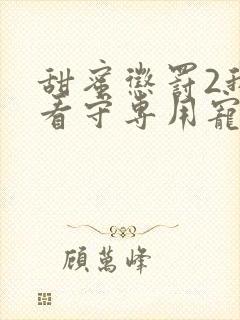 甜蜜懲罰2我
看守專用寵
顾萬峰